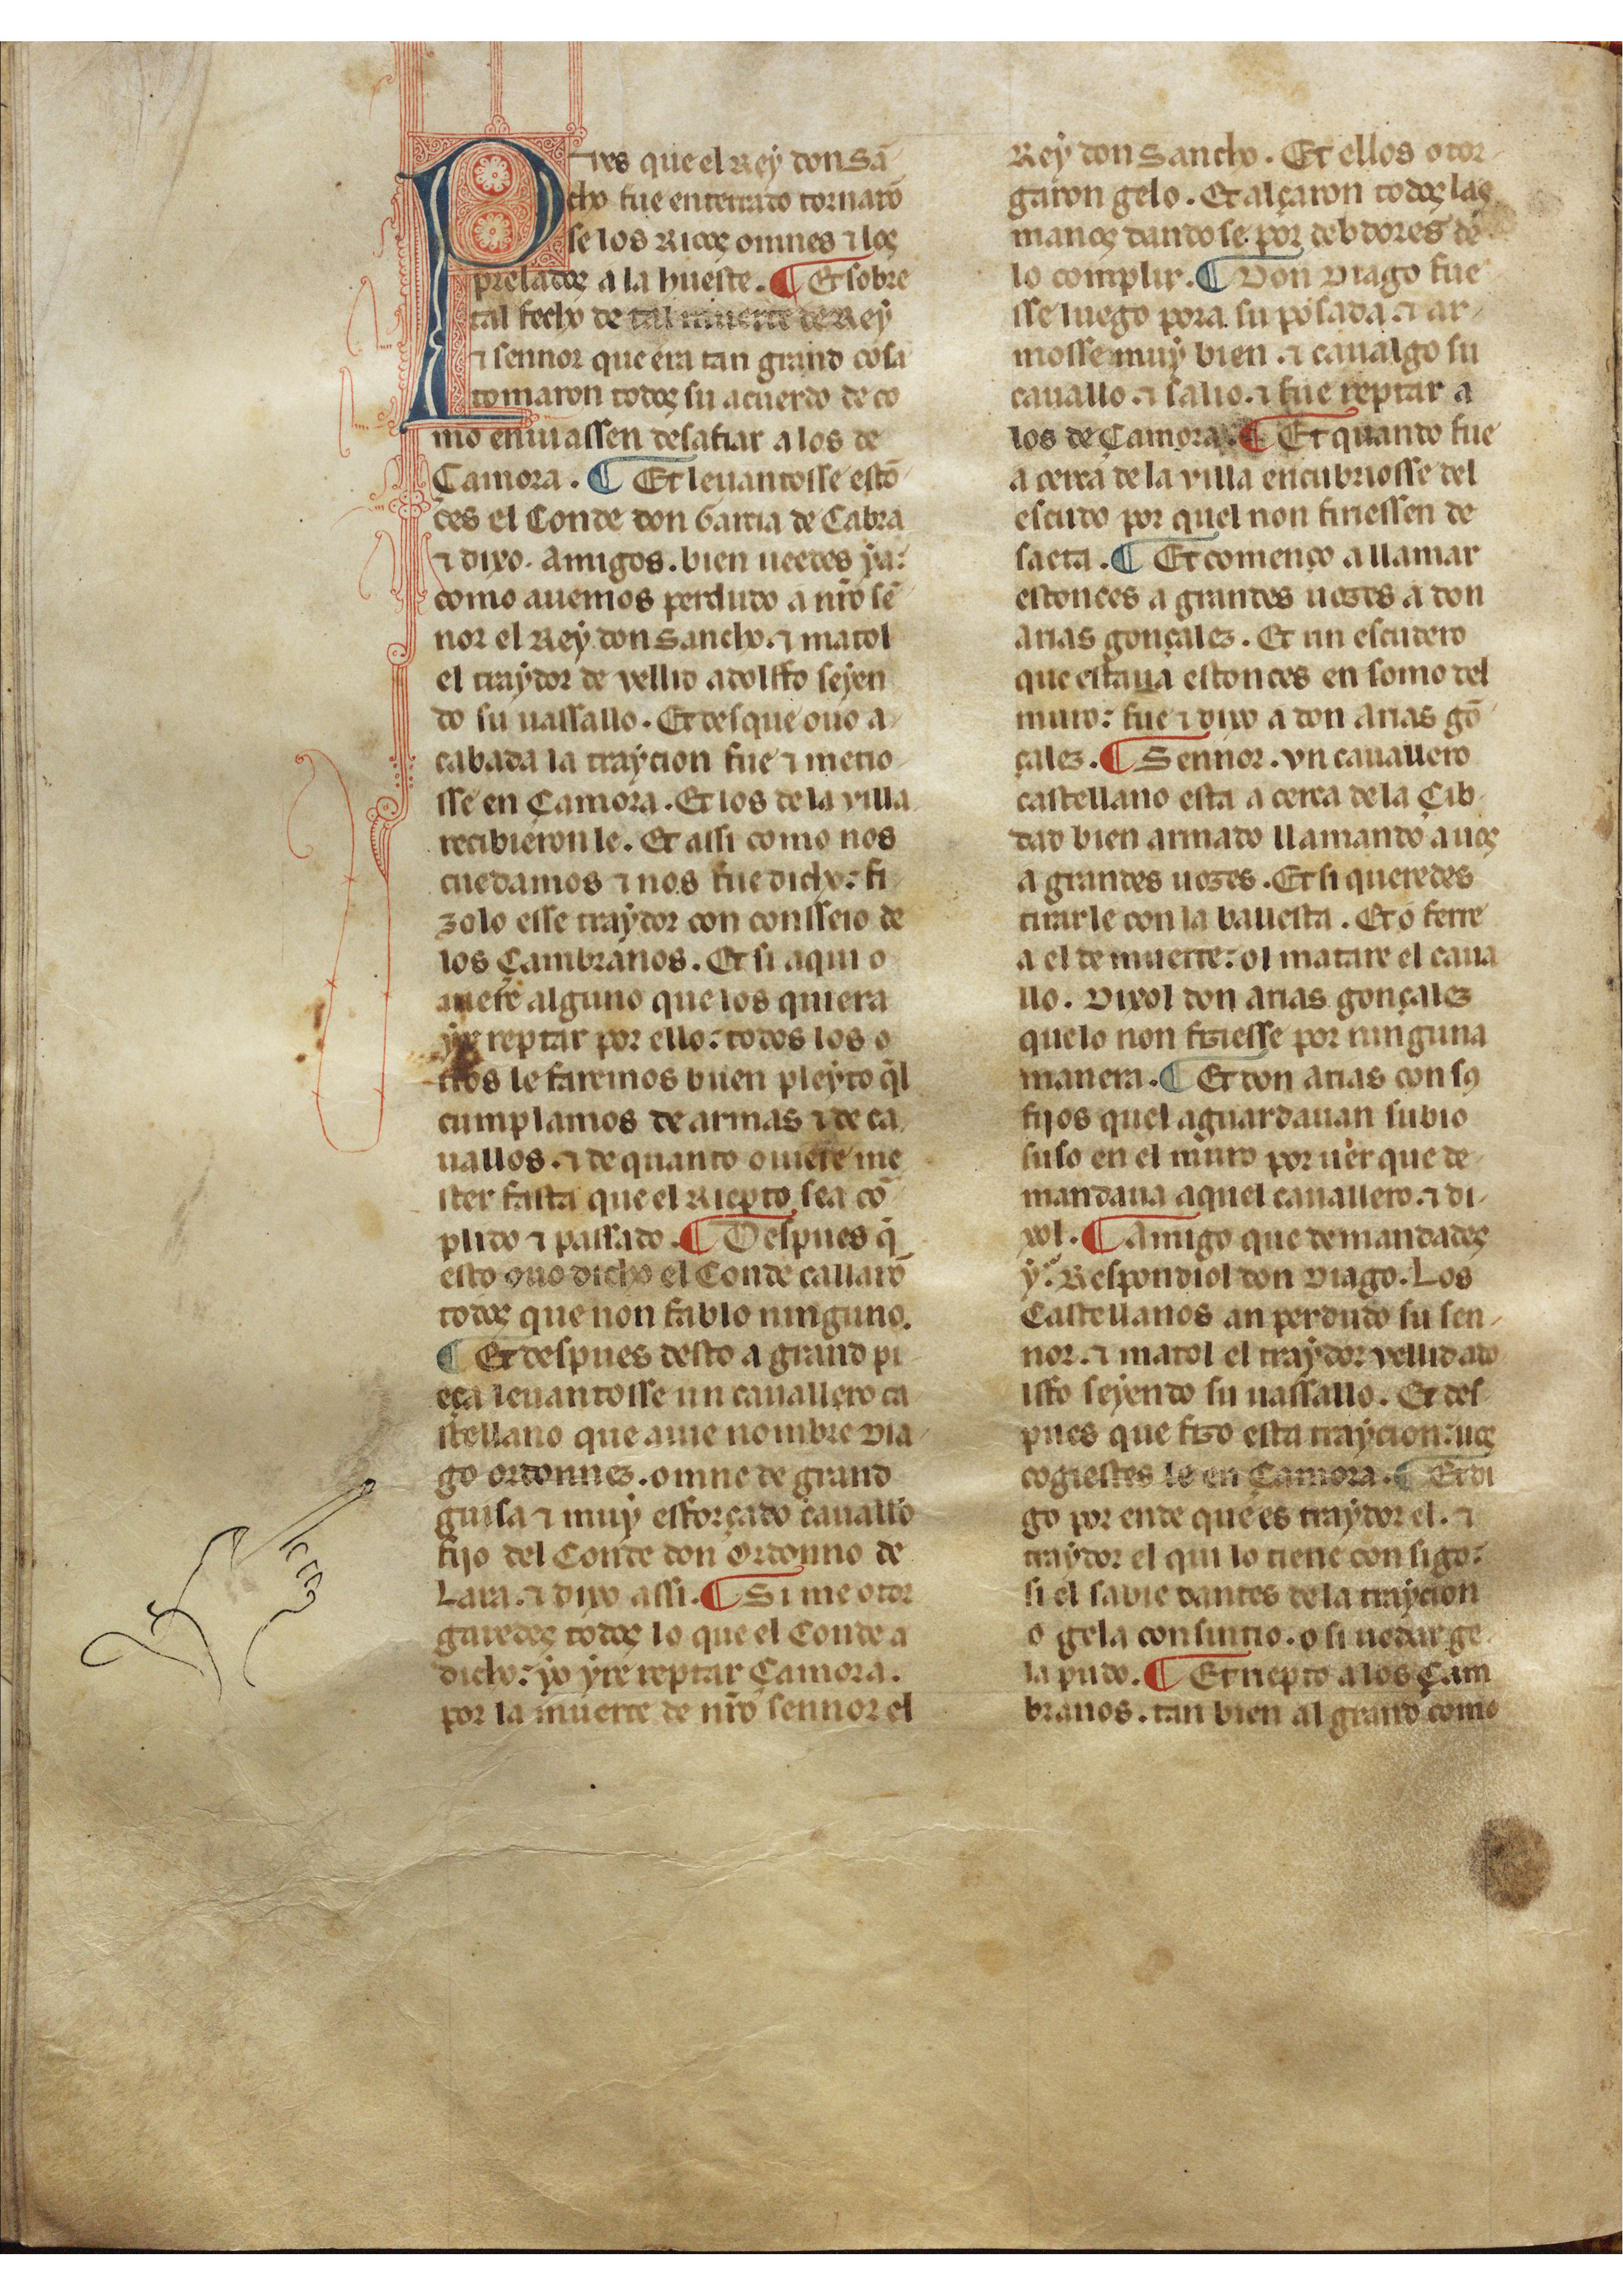 Pues que el Rey don Sã
cho fue enterrado tornarõ
se los Ricos omnes ⁊ los
prelados a la hueste. ¶ Et sobre
tal fecho de tal muerte de Rey
⁊ sennor que era tan grand cosa
tomaron todos su acuerdo de co
mo enuiassen desafiar a los de
Çamora. ¶ Et leuantosse estõ
ces el Conde don Garcia de Cabra
⁊ dixo. Amigos. bien ueedes ya:
como auemos perdudo a nr̃o sẽ
nor el Rey don Sancho. ⁊ matol
el traydor de vellid adolffo seyen
do su uassallo. Et desque ouo a
cabada la traycion fue ⁊ metio
sse en Çamora. Et los de la villa
recibieron le. Et assi como nos
cuedamos ⁊ nos fue dicho: fi
zolo esse traydor con conseio de
los Çambranos. Et si aqui o
uiere alguno que los quiera
yr reptar por ello: todos los o
tros le faremos buen pleyto q̃l
cumplamos de armas ⁊ de ca
uallos. ⁊ de quanto ouiere me
ster fasta que el Riepto sea cõ
plido ⁊ passado. ¶ Despues q̃
esto ouo dicho el Conde callarõ
todos que non fablo ninguno.
¶ Et despues desto a grand pi
eça leuantosse un cauallero ca
stellano que auie nombre Dia
go ordonnez. omne de grand
guisa ⁊ muy esforçado cauallõ
fijo del Conde don Ordonno de
Lara. ⁊ dixo assi. ¶ Si me otor
garedes todos lo que el Conde a
dicho: yo yre reptar Çamora.
por la muerte de nr̃o sennor el
Rey don Sancho. Et ellos otor
garon gelo. Et alçaron todos las
manos dando se por debdores de
lo complir. ¶ Don Diago fue
sse luego pora su posada. ⁊ ar
mosse muy bien. ⁊ caualgo su
cauallo. ⁊ salio. ⁊ fue reptar a
los de Çamora. ¶ Et quando fue
a cerca de la villa encubriosse del
escudo por quel non firiessen de
saeta. ¶ Et començo a llamar
estonces a grandes uozes a don
Arias gonçalez. Et un escudero
que estaua estonces en somo del
muro: fue ⁊ dixo a don Arias gõ
çalez. ¶ Sennor. vn cauallero
castellano esta a cerca de la Çib
dad bien armado llamando a uos
a grandes uozes. Et si queredes
tirarle con la ballesta. Et o ferre
a el de muerte: ol matare el caua
llo. Dixol don Arias gonçalez
que lo non fiziesse por ninguna
manera. ¶ Et don Arias con sꝯ
fijos quel aguardauan subio
suso en el muro por uer que de
mandaua aquel cauallero. ⁊ di
xol. ¶ Amigo que demandades
y. Respondiol don Diago. Los
Castellanos an perdudo su sen
nor. ⁊ matol el traydor vellid ado
lffo seyendo su uassallo. Et des
pues que fizo esta traycion: uos
cogiestes le en Çamora. ¶ Et di
go por ende que es traydor el. ⁊
traydor el qui lo tiene consigo:
si el sabie dantes de la traycion
o gela consintio. o si uedar ge
la pudo. ¶ Et riepto a los Çam
branos. tan bien al grand como